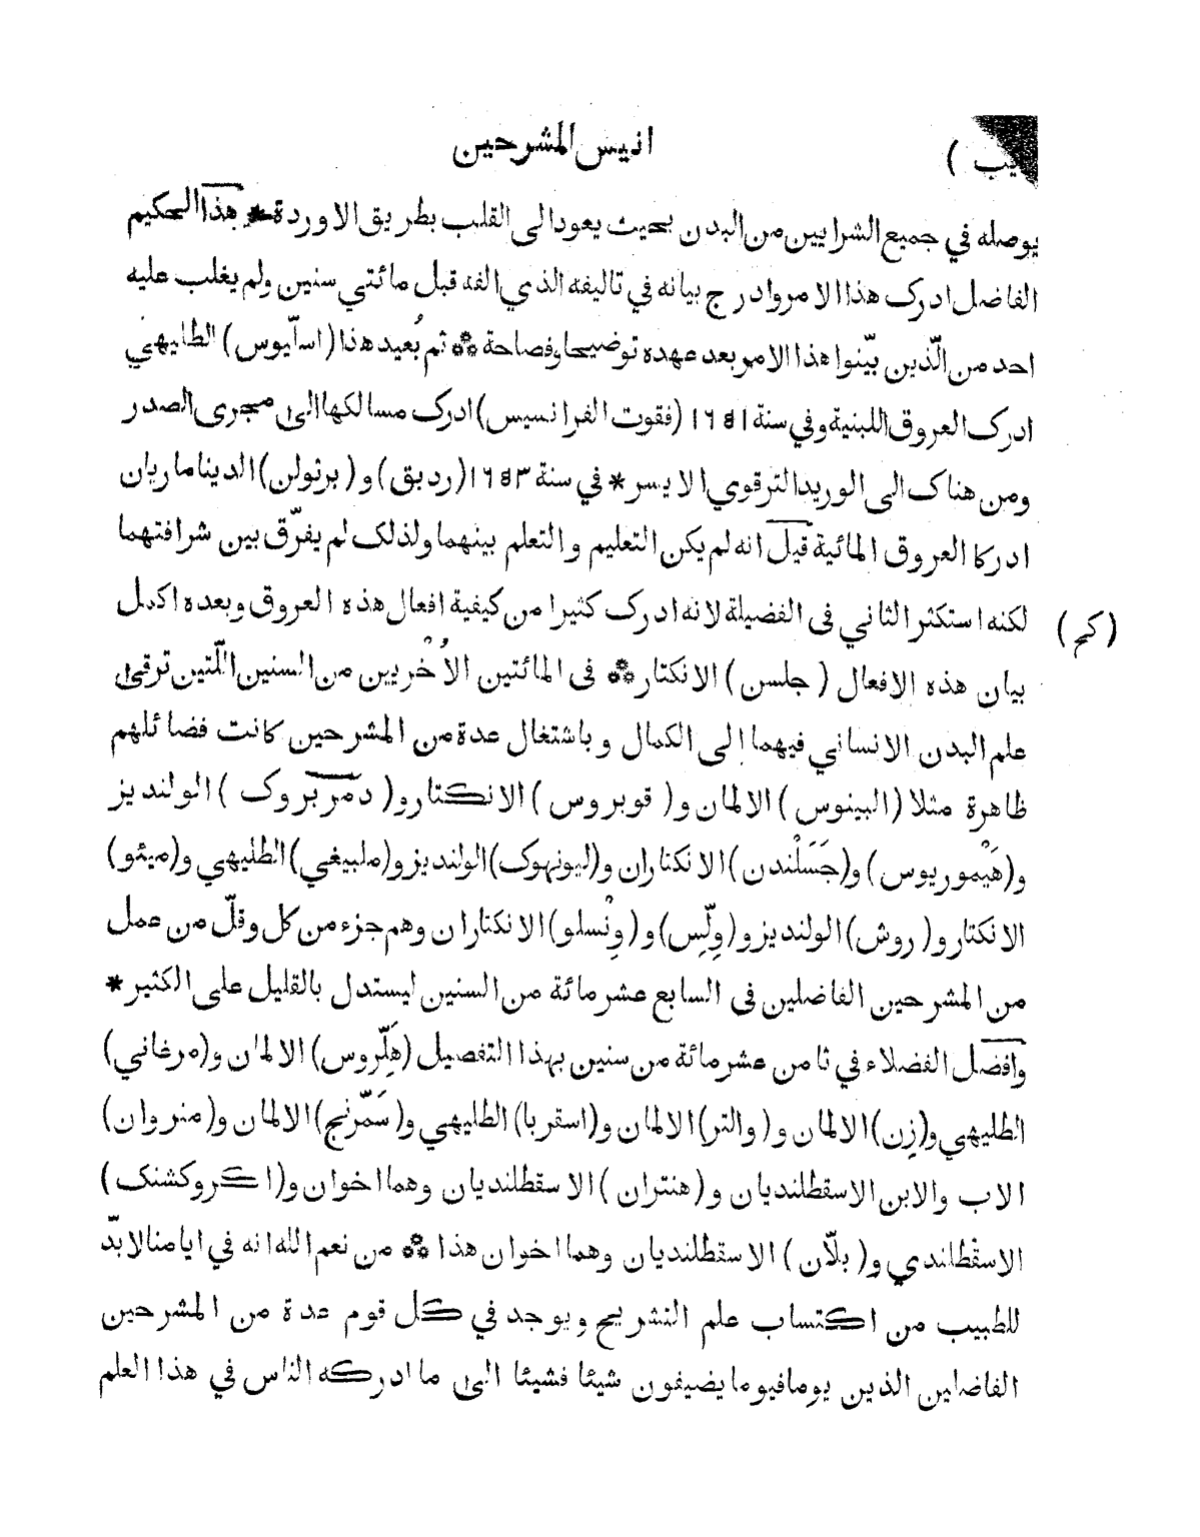 انيس المشرحين
يب )
يوصله في جميع الشرايين من البدن بحيث يعود الى القلب بطريق الاوردة * هذا الحكيم
الفاضل ادرك هذا الامر وادرج بيانه في تاليفه الذي الفه قبل مائتي سنين ولم يغلب عليه
احد من الّذين بيّنوا هذا الامر بعد عهده توضيحا وفصاحة ⁂ ثم بُعيد هذا (اسآيوس) الطليهي
ادرك العروق اللبنية وفي سنة ١٦٥١ (فقوت الفرانسيس) ادرك مسالكها الى مجرى الصدر
ومن هناك الى الوريد الترقوي الايسر * في سنة ١٦٥٣ (ردبق) و (برتولن) الديناماريان
ادركا العروق المائية قيل انه لم يكن التعليم والتعلم بينهما ولذلك لم يفرّق بين شرافتهما
لكنه استكثر الثاني فى الفضيلة لانه ادرك كثيرا من كيفية افعال هذه العروق وبعده اكمل
(كم)
بيان هذه الافعال (جلسن) الانكتار ⁂ فى المائتين الاُخْريين من السنين اللّتين ترقى
علم البدن الانساني فيهما إلى الكمال وباشتغال عدة من المشرحين كانت فضائلهم
ظاهرة مثلا (البينوس) الالمان و (قوبروس) الانكتار و (دمربروك) الولنديز
و (هَيْموريوس) و (جَسَلْندن) الانكتاران و (ليونهوك) الولنديز و (ملبيغي) الطليهي و (ميئو)
الانكتار و (روش) الولنديز و (وِلّيس) و (وِنْسلو) الانكتاران وهم جزء من كل وقلّ من عمل
من المشرحين الفاضلين فى السابع عشر مائة من السنين ليستدل بالقليل على الكثير *
وافضل الفضلاء في ثامن عشر مائة من سنين بهذا التفصيل (هَلِّروس) الالمان و (مرغاني)
الطليهي و (زِن) الالمان و (والتر) الالمان و (اسقربا) الطليهي و (سَمّرنج) الالمان و (منروان)
الاب والابن الاسقطلنديان و (هنتران) الاسقطلنديان وهما اخوان و (اكروكشنك)
الاسقْطلندي و (بلّان) الاسقطلنديان وهما اخوان هذا ⁂ من نعم الله انه في ايامنا لابدّ
للطبيب من اكتساب علم التشريح ويوجد في كل قوم عدة من المشرحين
الفاضلين الذين يوما فيوما يضيفون شيئا فشيئا الى ما ادركه الناس في هذا العلم